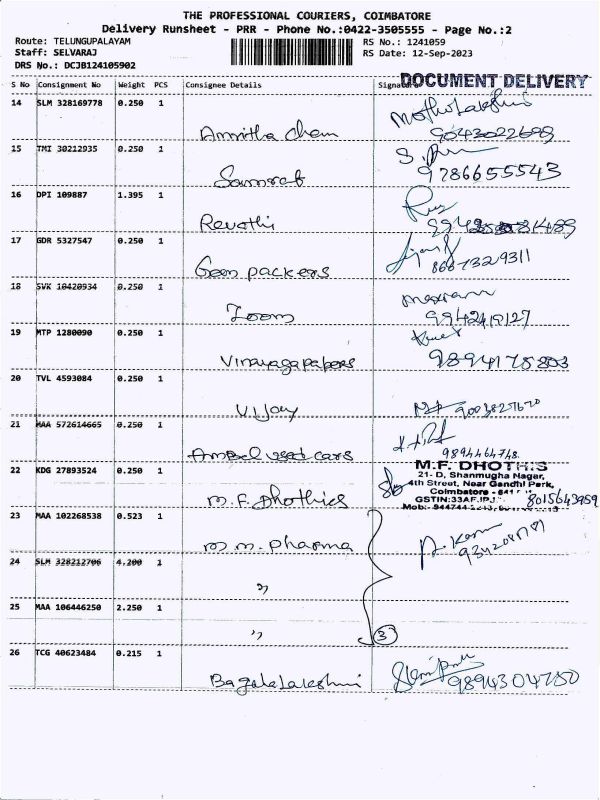 THE PROFESSIONAL COURIERS, COIMBATORE
Delivery Runsheet - PRR - Phone No.:0422-3505555 - Page No.:2
Route: TELUNGUPALAYAM RS No.: 1241059
Staff: SELVARAJ RS Date: 12-Sep-2023
DRS No.: DCJB124105902
DOCUMENT DELIVERY
S No Consignment No Weight PCS Consignee Details Signature
14 SLM 328169778 0.250 1
Amritha chem 9043022698
15 TMI 30212935 0.250 1
Samrat 9786655543
16 DPI 109887 1.395 1
Revathi
17 GDR 5327547 0.250 1
Geem packers 8667329311
18 SVK 10420934 0.250 1
Zoom 9942419127
19 MTP 1280090 0.250 1
Vinayagapapers 9894178803
20 TVL 4593084 0.250 1
Vijay 9003827670
21 MAA 572614665 0.250 1
Ampel used cars 9894464748
22 KDG 27893524 0.250 1
M.F. DHOTHIS
21- D, Shanmugha Nagar,
4th Street, Near Gandhi Park,
Coimbatore - 641
M.F. Dhothies GSTIN:33AFJPJ 8015643959
Mob:- 944744
23 MAA 102268538 0.523 1
M.M. Pharma
24 SLM 328212706 4.200 1
"
25 MAA 106446250 2.250 1
" 3
26 TCG 40623484 0.215 1
Bagalalakshmi 9894304750